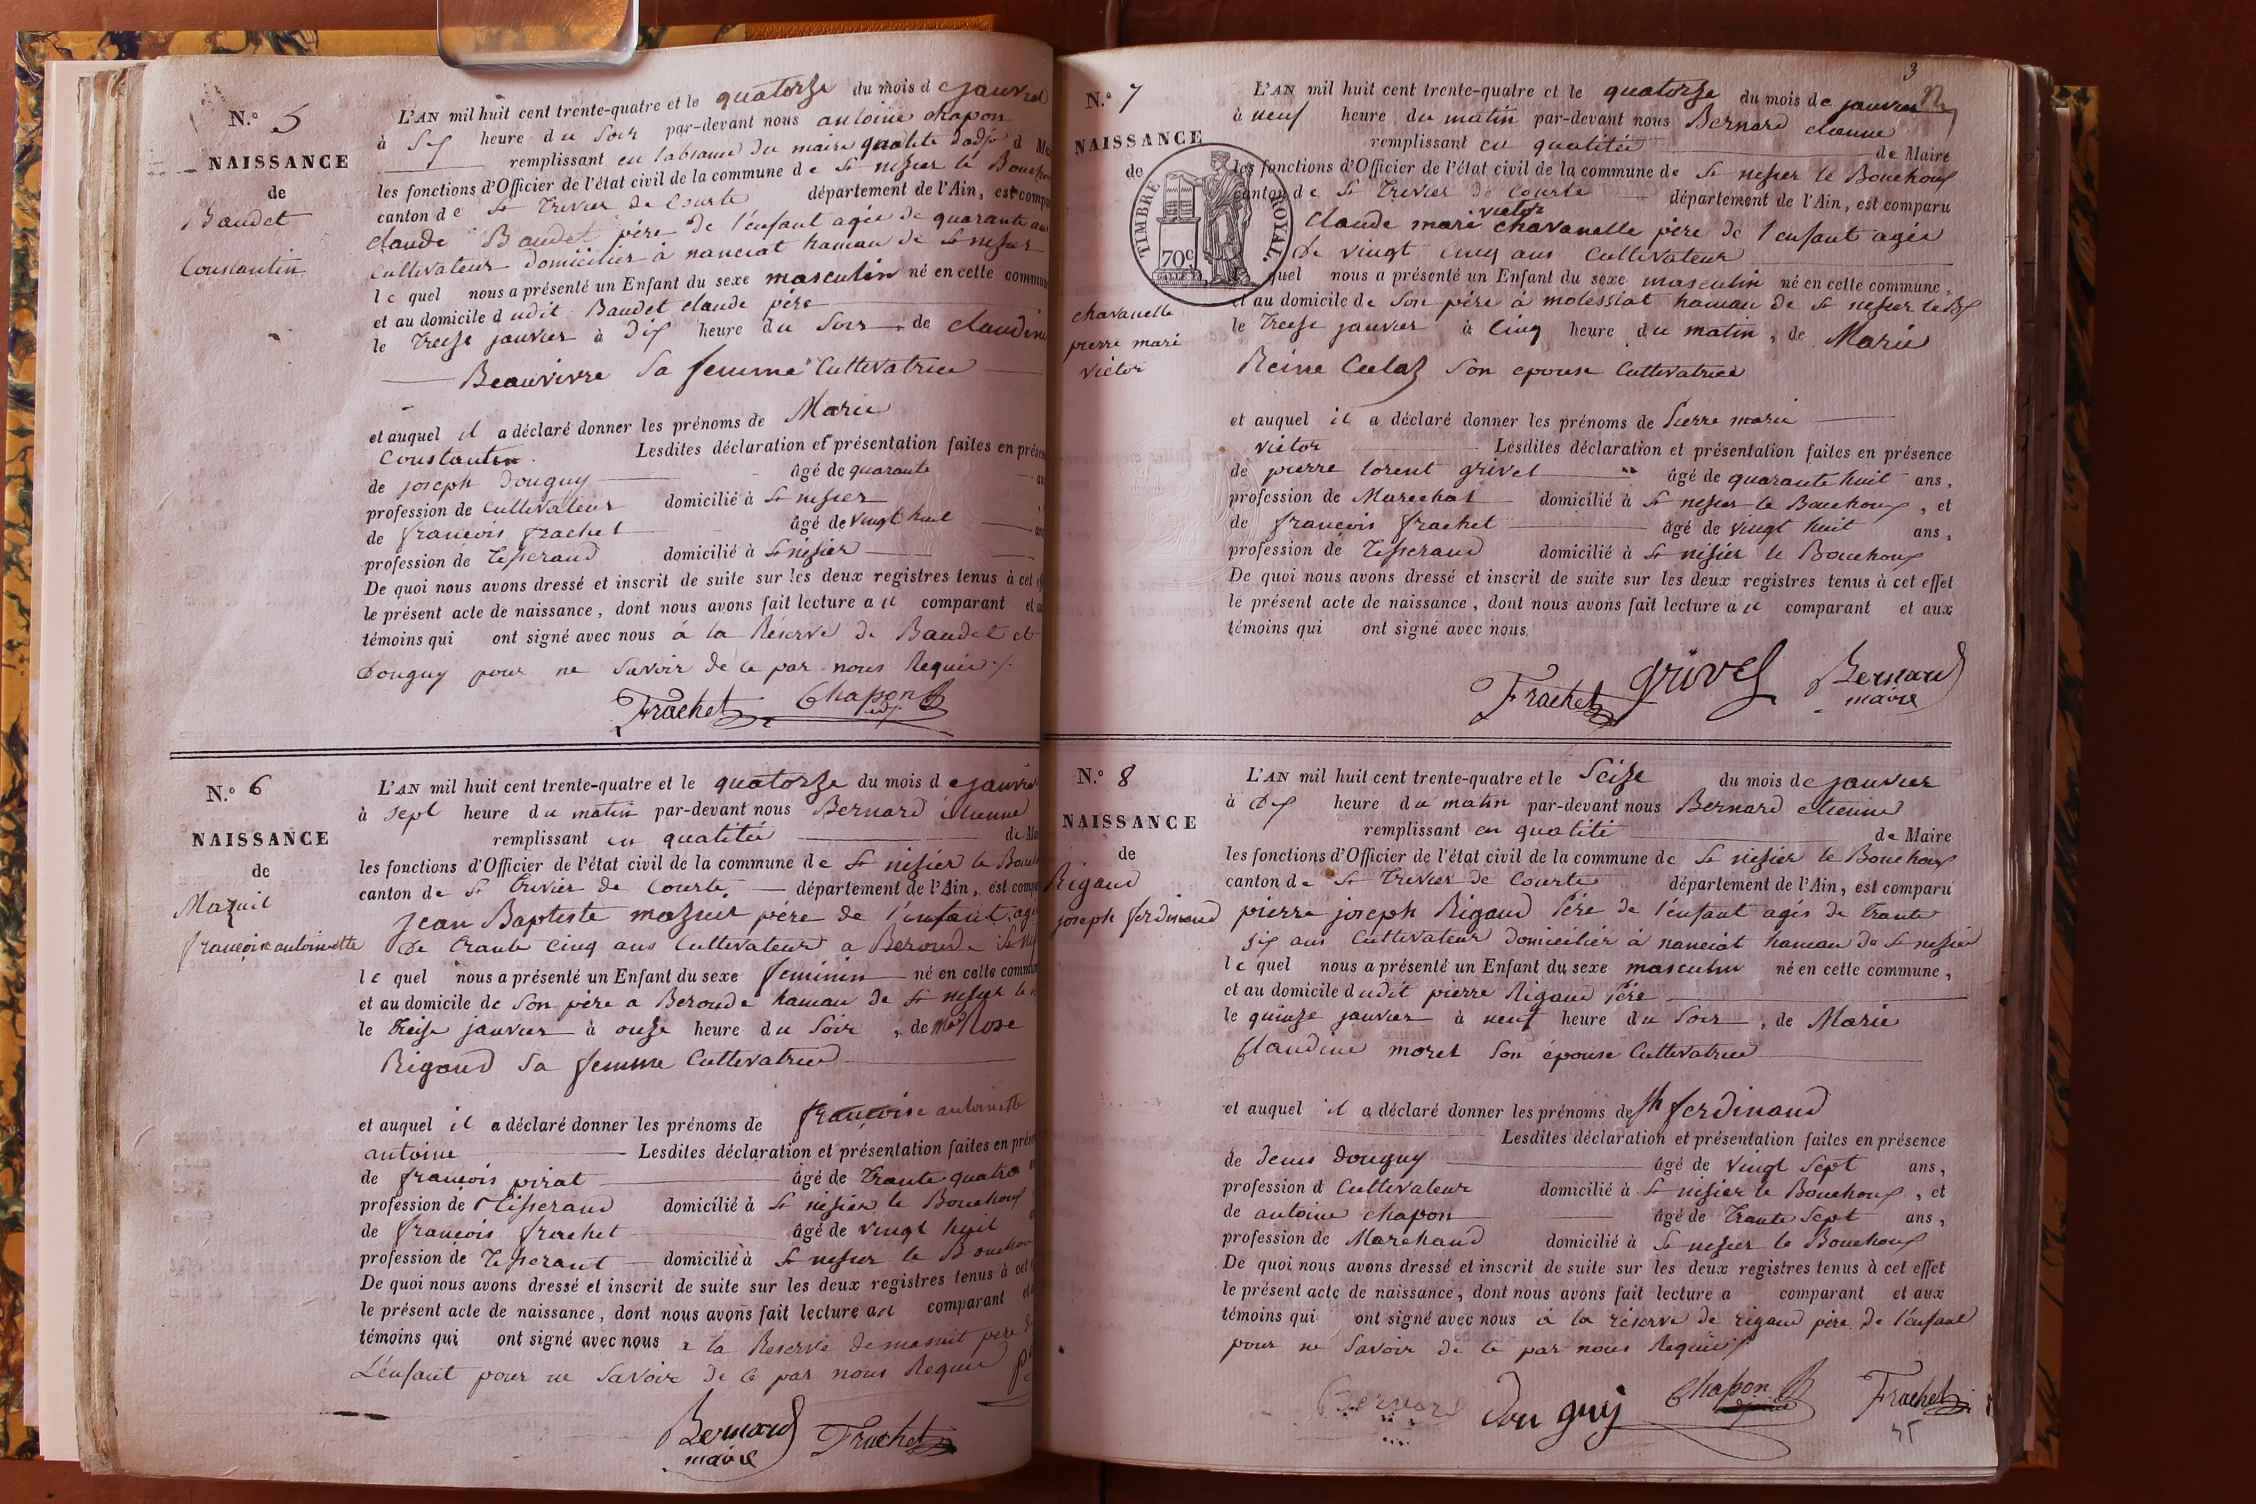 N.° 5
NAISSANCE
de
Baudet
Constantin
L'AN mil huit cent trente-quatre et le quatorze du mois de janvier
à six heure du soir par-devant nous antoine chapon
remplissant en l'absance du maire qualité d'adjt d
les fonctions d'Officier de l'état civil de la commune de St nisier le Bouchoux
canton de St Trivier de Courte département de l'Ain, est compa
claude Baudet père de l'enfant agée de quarante ans
Cultivateur domicilier à nanciat hamau de St nisier
le quel nous a présenté un Enfant du sexe masculin né en cette commun
et au domicile dudit Baudet claude père
le treise janvier à dix heure du soir de claudine
Beauvivre sa femme Cultivatrice
et auquel il a déclaré donner les prénoms de Marie
Constantin. Lesdites déclaration et présentation faites en prése
de joseph Douguy âgé de quarante
profession de Cultivateur domicilié à St nisier
de françois frachet âgé de vingt huit
profession de Tisserand domicilié à St nisier
De quoi nous avons dressé et inscrit de suite sur les deux registres tenus à cet
le présent acte de naissance, dont nous avons fait lecture au comparant et
témoins qui ont signé avec nous à la Réserve de Baudet et
Douguy pour ne savoir de ce par nous Requis
Frachet Chapon adj
N.° 6
NAISSANCE
de
Mazuit
françoise antoinette
L'AN mil huit cent trente-quatre et le quatorze du mois de janvier
à sept heure du matin par-devant nous Bernard étienne
remplissant en qualitée de Ma
les fonctions d'Officier de l'état civil de la commune de St nisier le Bouch
canton de St Trivier de Courte département de l'Ain, est compa
jean Baptiste mazuit père de l'enfant, agé
de trante cinq ans Cultivateur a Beroude St
le quel nous a présenté un Enfant du sexe feminin né en cette commun
et au domicile de son père a Beroude hamau de St nisier le
le treise janvier à onze heure du soir, de Mie Rose
Rigaud sa femme Cultivatrice
et auquel il a déclaré donner les prénoms de françoise antoinette
antoine Lesdites déclaration et présentation faites en prése
de françois pirat âgé de trante quatre
profession de Tisserand domicilié à St nisier le Bouchoux
de françois frachet âgé de vingt huit
profession de Tisserant domicilié à St nisier le Bouchou
De quoi nous avons dressé et inscrit de suite sur les deux registres tenus à cet
le présent acte de naissance, dont nous avons fait lecture au comparant et
témoins qui ont signé avec nous a la Reserve de masuit pere de
L'enfant pour ne savoir de ce par nous Requis
Bernard Frachet
maire
3
N.° 7
NAISSANCE
de
TIMBRE ROYAL.
70c
chavanelle
pierre mari
victor
L'AN mil huit cent trente-quatre et le quatorze du mois de janvier
à neuf heure du matin par-devant nous Bernard etienne
remplissant en qualitée de Maire
les fonctions d'Officier de l'état civil de la commune de St nisier le Bouchoux
canton de St Trivier de Courte département de l'Ain, est comparu
victor
claude mari chavanelle père de l'enfant agée
de vingt cinq ans Cultivateur
quel nous a présenté un Enfant du sexe masculin né en cette commune,
et au domicile de son père à molessiat hamau de St nisier le Bx
le treise janvier à cinq heure du matin, de Marie
Reine Culaz son epouse Cultivatrice
et auquel il a déclaré donner les prénoms de Pierre marie
victor Lesdites déclaration et présentation faites en présence
de pierre lorent grivel âgé de quarante huit ans,
profession de Marechal domicilié à St nisier le Bouchoux, et
de françois frachet âgé de vingt huit ans,
profession de Tisserand domicilié à St nisier le Bouchoux
De quoi nous avons dressé et inscrit de suite sur les deux registres tenus à cet effet
le présent acte de naissance, dont nous avons fait lecture au comparant et aux
témoins qui ont signé avec nous.
Frachet grivel Bernard
maire
N.° 8
NAISSANCE
de
Rigaud
joseph ferdinand
L'AN mil huit cent trente-quatre et le Seize du mois de janvier
à dix heure du matin par-devant nous Bernard etienne
remplissant en qualité de Maire
les fonctions d'Officier de l'état civil de la commune de St nisier le Bouchoux
canton de St Trivier de Courte département de l'Ain, est comparu
pierre joseph Rigaud Père de l'enfant agés de trante
six ans Cultivateur domicilier à nanciat hamau de St nisier
le quel nous a présenté un Enfant du sexe masculin né en cette commune,
et au domicile dudit pierre Rigaud Père
le quinze janvier à neuf heure du soir, de Marie
Claudine morel son épouse Cultivatrice
et auquel il a déclaré donner les prénoms de jh ferdinand
Lesdites déclaration et présentation faites en présence
de Denis Douguy âgé de vingt sept ans,
profession d Cultivateur domicilié à St nisier le Bouchoux, et
de antoine chapon âgé de trante sept ans,
profession de Marchand domicilié à St nisier le Bouchoux
De quoi nous avons dressé et inscrit de suite sur les deux registres tenus à cet effet
le présent acte de naissance, dont nous avons fait lecture a comparant et aux
témoins qui ont signé avec nous à la réserve de rigaud père de l'enfant
pour ne savoir de ce par nous Requis
Bernard Douguy Chapon Frachet